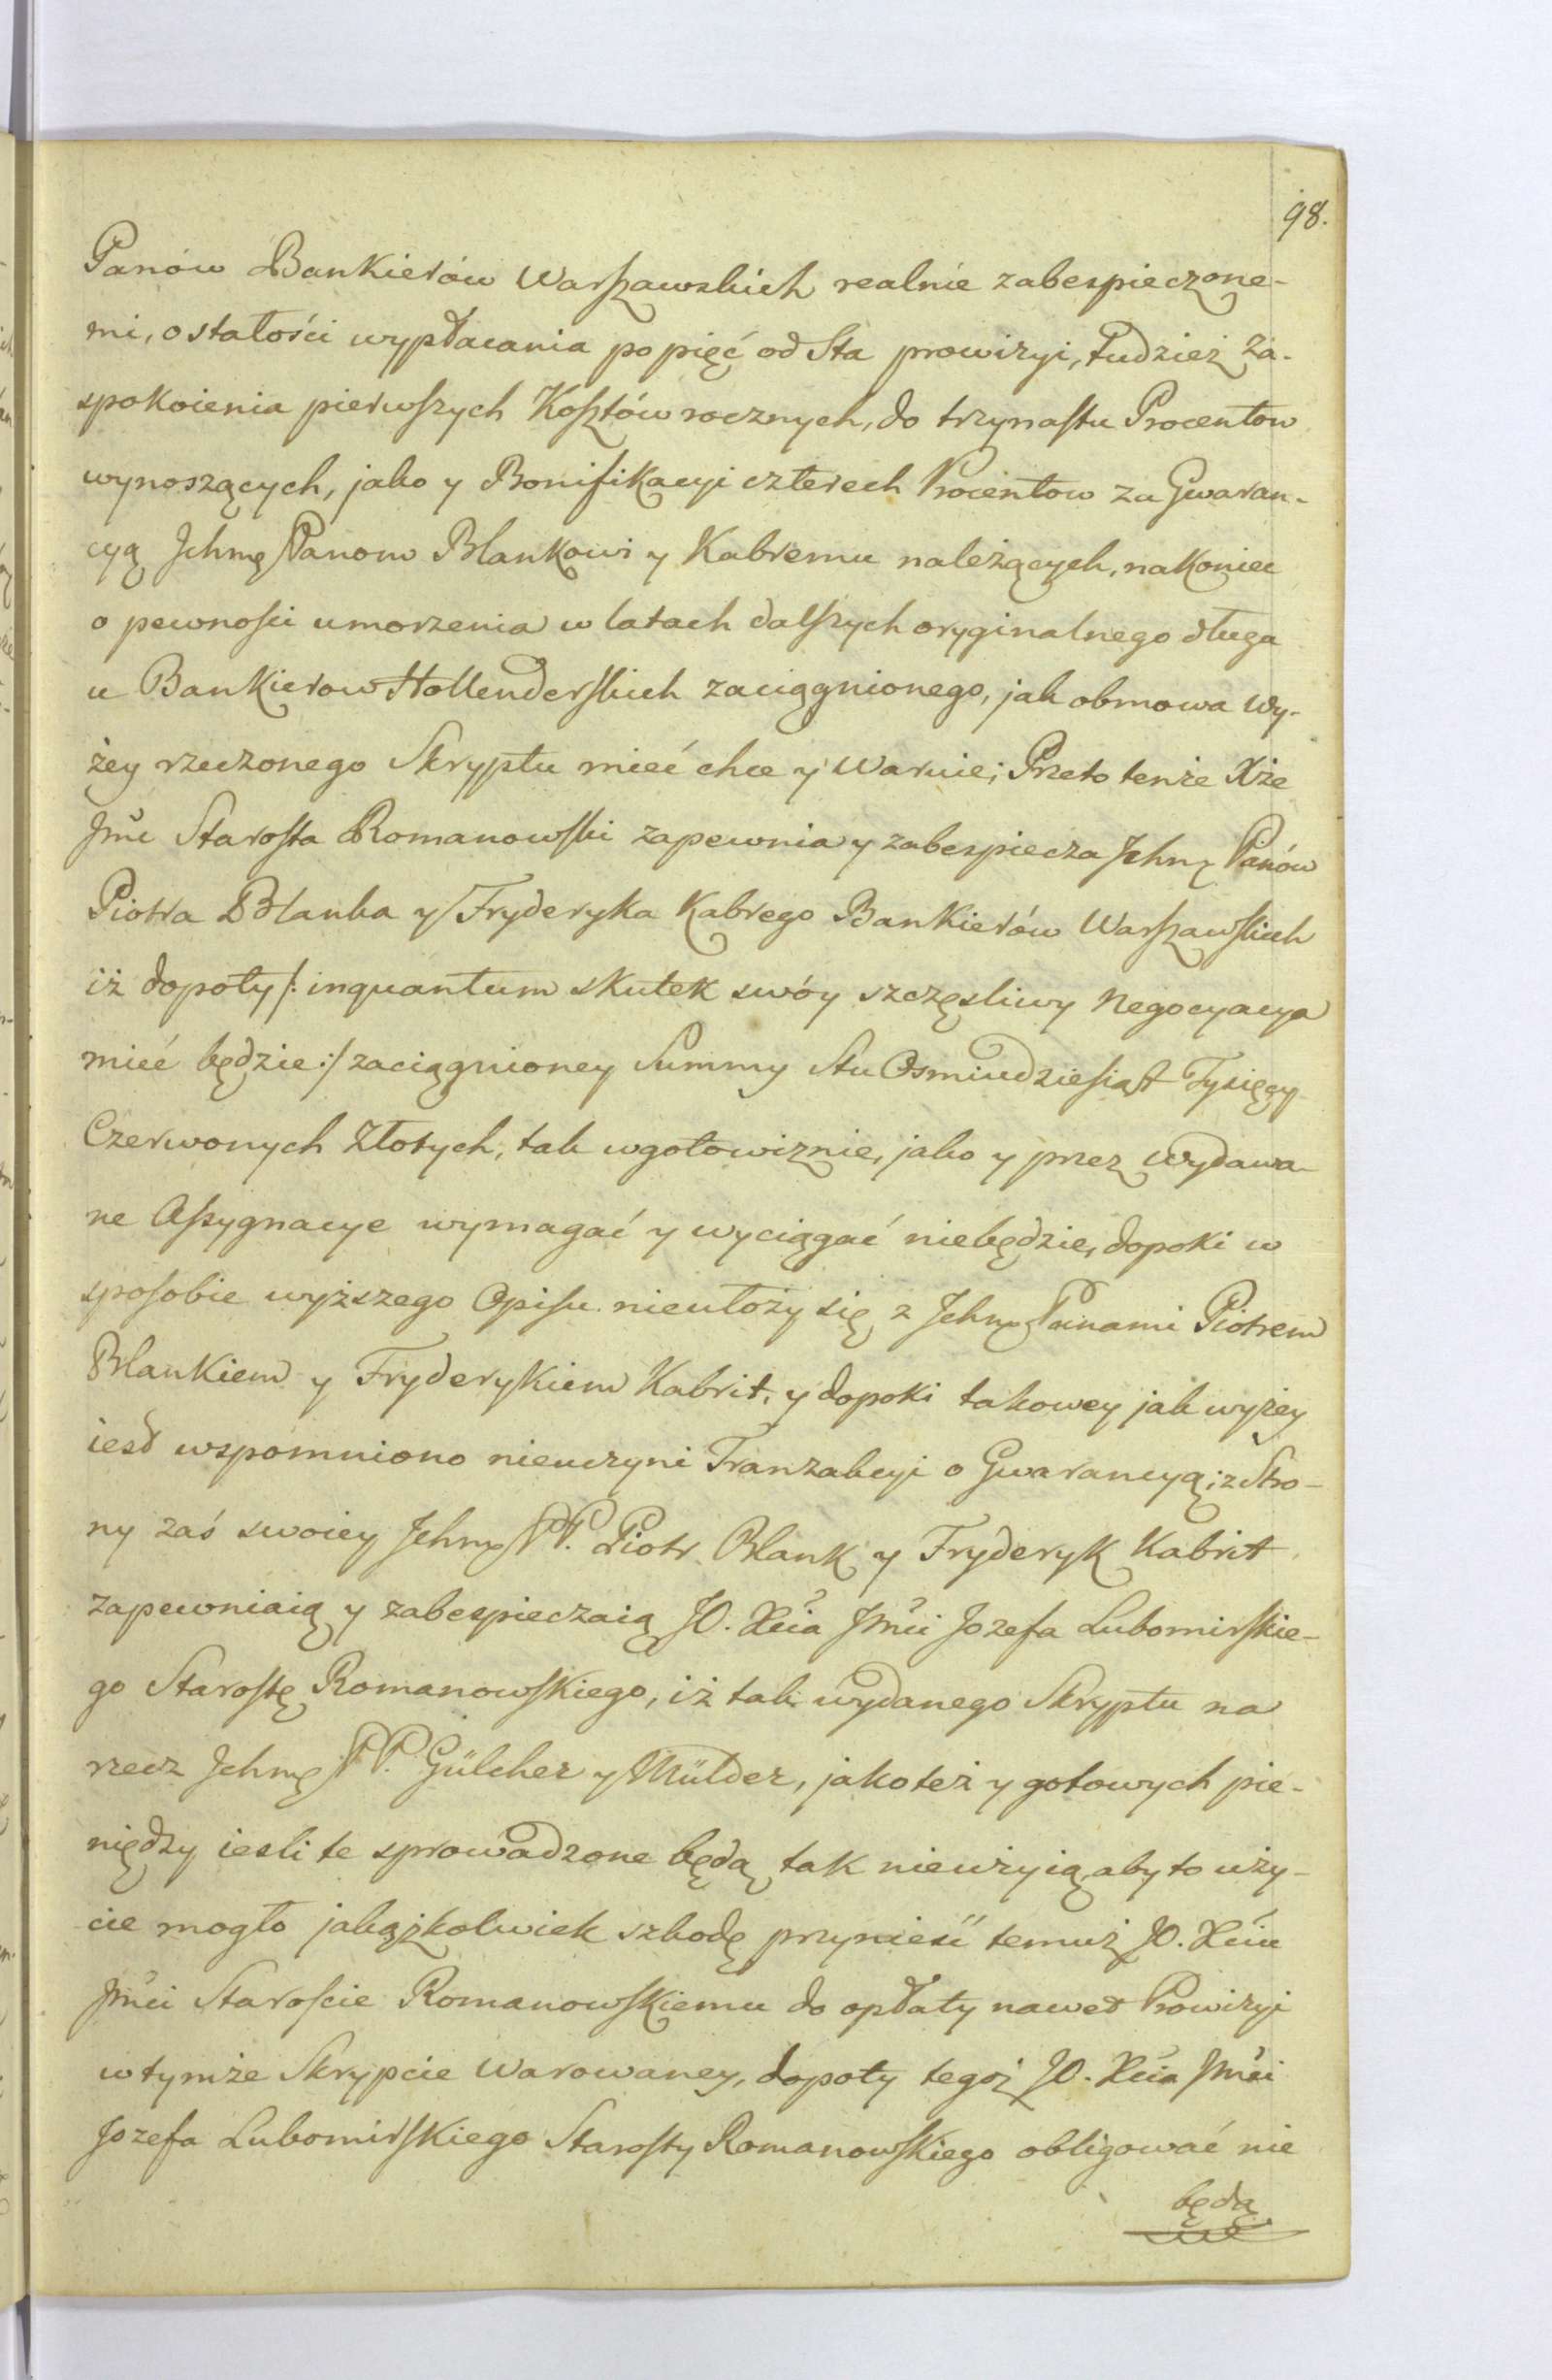 98.
Panów Bankierów Warszawskich realnie zabespieczone-
mi, o stałości wypłacania po pięć od Sta prowizyi, tudzież za-
spokoienia pierwszych Kosztów rocznych, do trzynastu Procentow
wynoszących, jako y Bonifikacyi czterech Procentow za Gwaran-
cyą Jchmę Panom Blankowi y Kabremu należących, nakoniec
o pewnosci umorzenia w latach dalszych oryginalnego długa
u Bankierow Hollenderskich zaciągnionego, jak obmowa wy-
żey rzeczonego Skryptu mieć chce y waruie; Przeto tenże Xże
Jmć Starosta Romanowski zapewnia y zabespiecza Jchmę Panów
Piotra Blanka y Fryderyka Kabrego Bankierów Warszawskich
iż dopoty /: inquantum skutek swóy szczęsliwy Negocyacya
mieć będzie :/ zaciągnioney Summy Stu Osmiudziesiąt Tysięcy
Czerwonych Złotych, tak w gotowiznie, jako y przez wydawa-
ne Assygnacye wymagać y wyciągać niebędzie, dopoki w
sposobie wyższego Opisu nieułoży się z Jchmę Panami Piotrem
Blankiem y Fryderykiem Kabrit, y dopoki takowey jak wyżey
iest wspomniono nieuczyni Tranzakcyi o Gwarancyą; z Stro-
ny zaś swoiey Jchmę PP. Piotr Blank y Fryderyk Kabrit
zapewniaią y zabespieczaią JO. Xcia Jmći Jozefa Lubomirskie-
go Starostę Romanowskiego, iż tak wydanego Skryptu na
rzecz Jchmę PP. Gülcher y Mülder, jako też y gotowych pie-
niędzy iesli te sprowadzone będą tak nieużyią, aby to uży-
cie mogło jakążkolwiek szkodę przynieść temuż JO. Xciu
Jmći Staroscie Romanowskiemu do opłaty nawet Prowizyi
w tymże Skrypcie Warowaney, dopoty tegoż JO. Xcia Jmći
Jozefa Lubomirskiego Starosty Romanowskiego obligować nie
będą